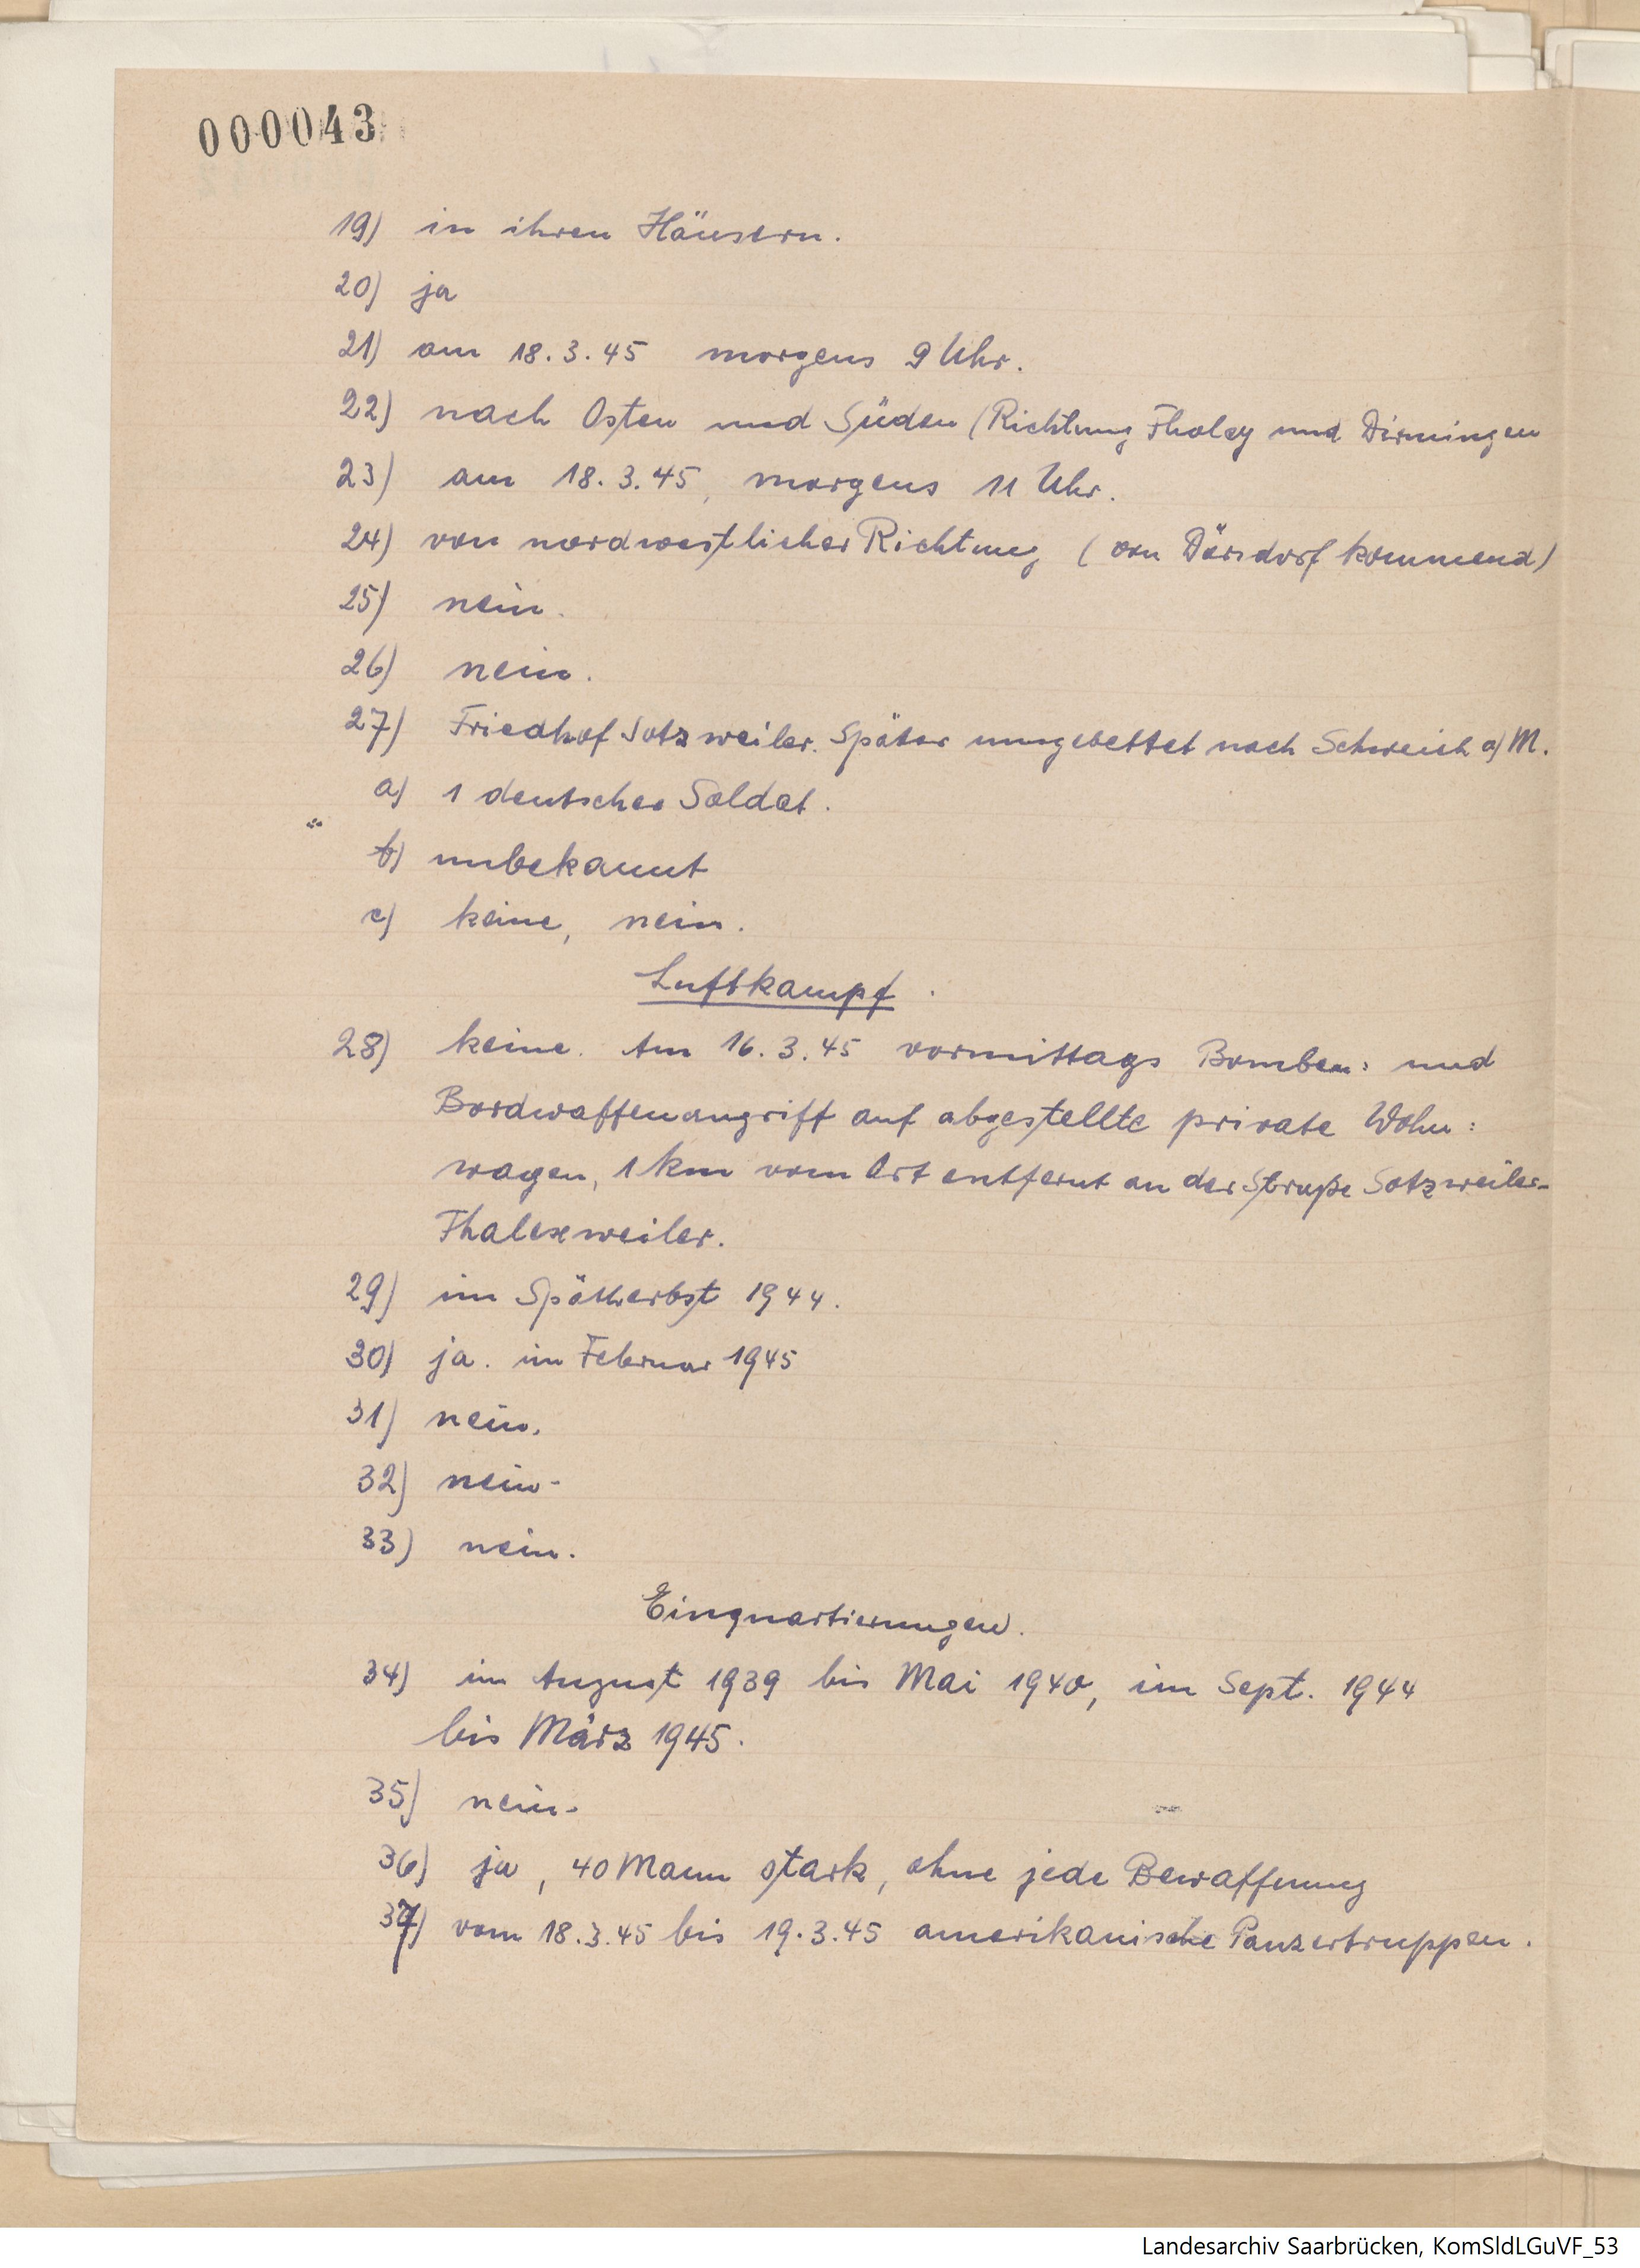 000043
19) in ihren Häusern.
20) ja
21) am 18.3.45 morgens 9 Uhr.
22) nach Osten und Süden (Richtung Tholey und Dirmingen
23) am 18.3.45, morgens 11 Uhr.
24) von nordwestlicher Richtung (von Dörsdorf kommend)
25) nein.
26) nein.
27) Friedhof Sotzweiler. Später umgebettet nach Schweich a/M.
a) 1 deutscher Soldat.
b) unbekannt
c) keine, nein.
Luftkampf.
28) keine. Am 16.3.45 vormittags Bomben: und
Bordwaffenangriff auf abgestellte private Wohn:
wagen, 1 km vom Ort entfernt an der Straße Sotzweiler-
Thalexweiler.
29) im Spätherbst 1944.
30) ja. im Februar 1945
31) nein.
32) nein.
33) nein.
Einquartierungen.
34) im August 1939 bis Mai 1940, im Sept. 1944
bis März 1945.
35) nein.
36) ja, 40 Mann stark, ohne jede Bewaffnung
37) vom 18.3.45 bis 19.3.45 amerikanische Panzertruppen.
Landesarchiv Saarbrücken, KomSldLGuVF_53